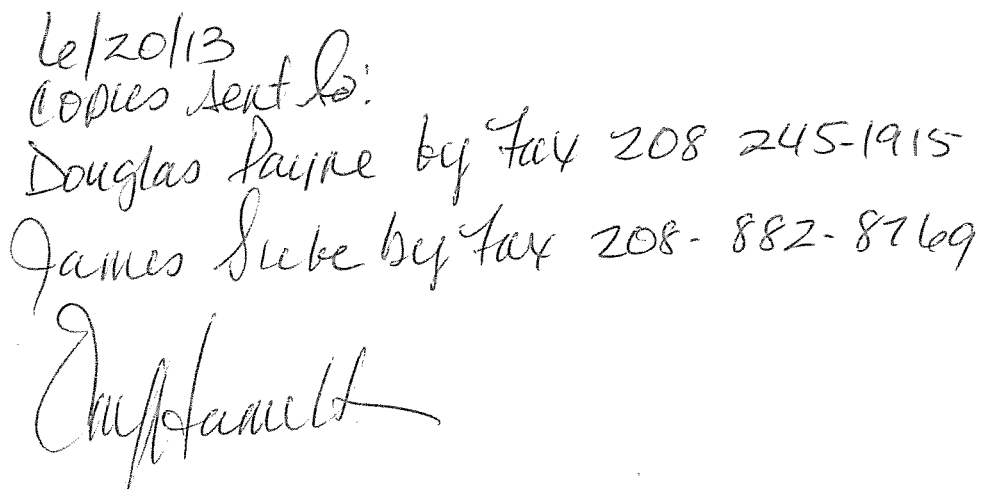 6/20/13
Copies sent to:
Douglas Payne by Fax 208 245-1915
James Siebe by Fax 208-882-8769
Hamilt